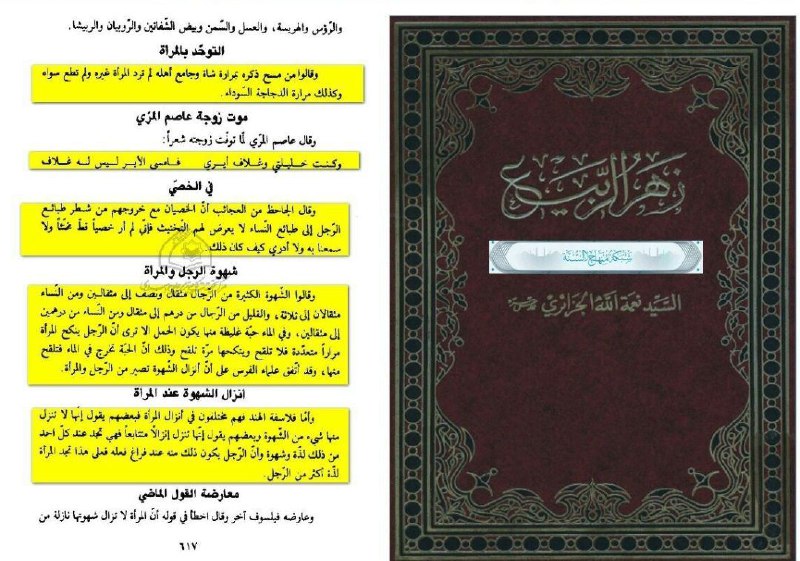 والرّؤس والهريسة، والعسل والسّمن وبيض الشّفانين والرّوبيان والربيشا.
التوحّد بالمرأة
وقالوا من مسح ذكره بمرارة شاة وجامع أهله لم ترد المرأة غيره ولم تطع سواه
وكذلك مرارة الدجاجة السّوداء.
موت زوجة عاصم المزّي
وقال عاصم المزّي لمّا توفّت زوجته شعراً:
وكنت خليلتي وغلاف أيري فامسى الأير ليس له غلاف
في الخصيّ
وقال الجاحظ من العجائب أنّ الخصيان مع خروجهم من شطر طبائع
الرّجل إلى طبائع النّساء لا يعرض لهم التخنيث فإني لم أر خصياً قطّ مخنّثاً ولا
سمعنا به ولا أدري كيف كان ذلك
شهوة الرجل والمرأة
وقالوا الشّهوة الكثيرة من الرّجال مثقال ونصف إلى مثقالين ومن النّساء
مثقالان إلى ثلاثة، والقليل من الرّجال من درهم إلى مثقال ومن النّساء من درهمين
إلى مثقالين، وفي الماء حبّة غليظة منها يكون الحمل الا ترى أنّ الرّجل ينكح المرأة
مراراً متعدّدة فلا تلقح وينكحها مرّة تلقح وذلك أنّ الحبّة تخرج في الماء فتلقح
منها، وقد أتّفق علماء الفرس على أنّ أنزال الشّهوة تصير من الرّجل والمرأة.
انزال الشهوة عند المرأة
وأمّا فلاسفة الهند فهم مختلفون في أنزال المرأة فبعضهم يقول إنّها لا تنزل
منها شيء من الشّهوة وبعضهم يقول إنّها تنزل إنزالاً متتابعاً فهي تجد عند كلّ احد
من ذلك لذّة وشهوة وأنّ الرّجل يكون ذلك منه عند فراغ فعله فعلى هذا تجد المرأة
لذّة أكثر من الرّجل.
معارضة القول الماضي
وعارضه فيلسوف آخر وقال اخطأ في قوله أنّ المرأة لا تزال شهوتها نازلة من
٦١٧
زهر الربيع
شبكة منهاج السنة
السيد نعمة الله الجزائري